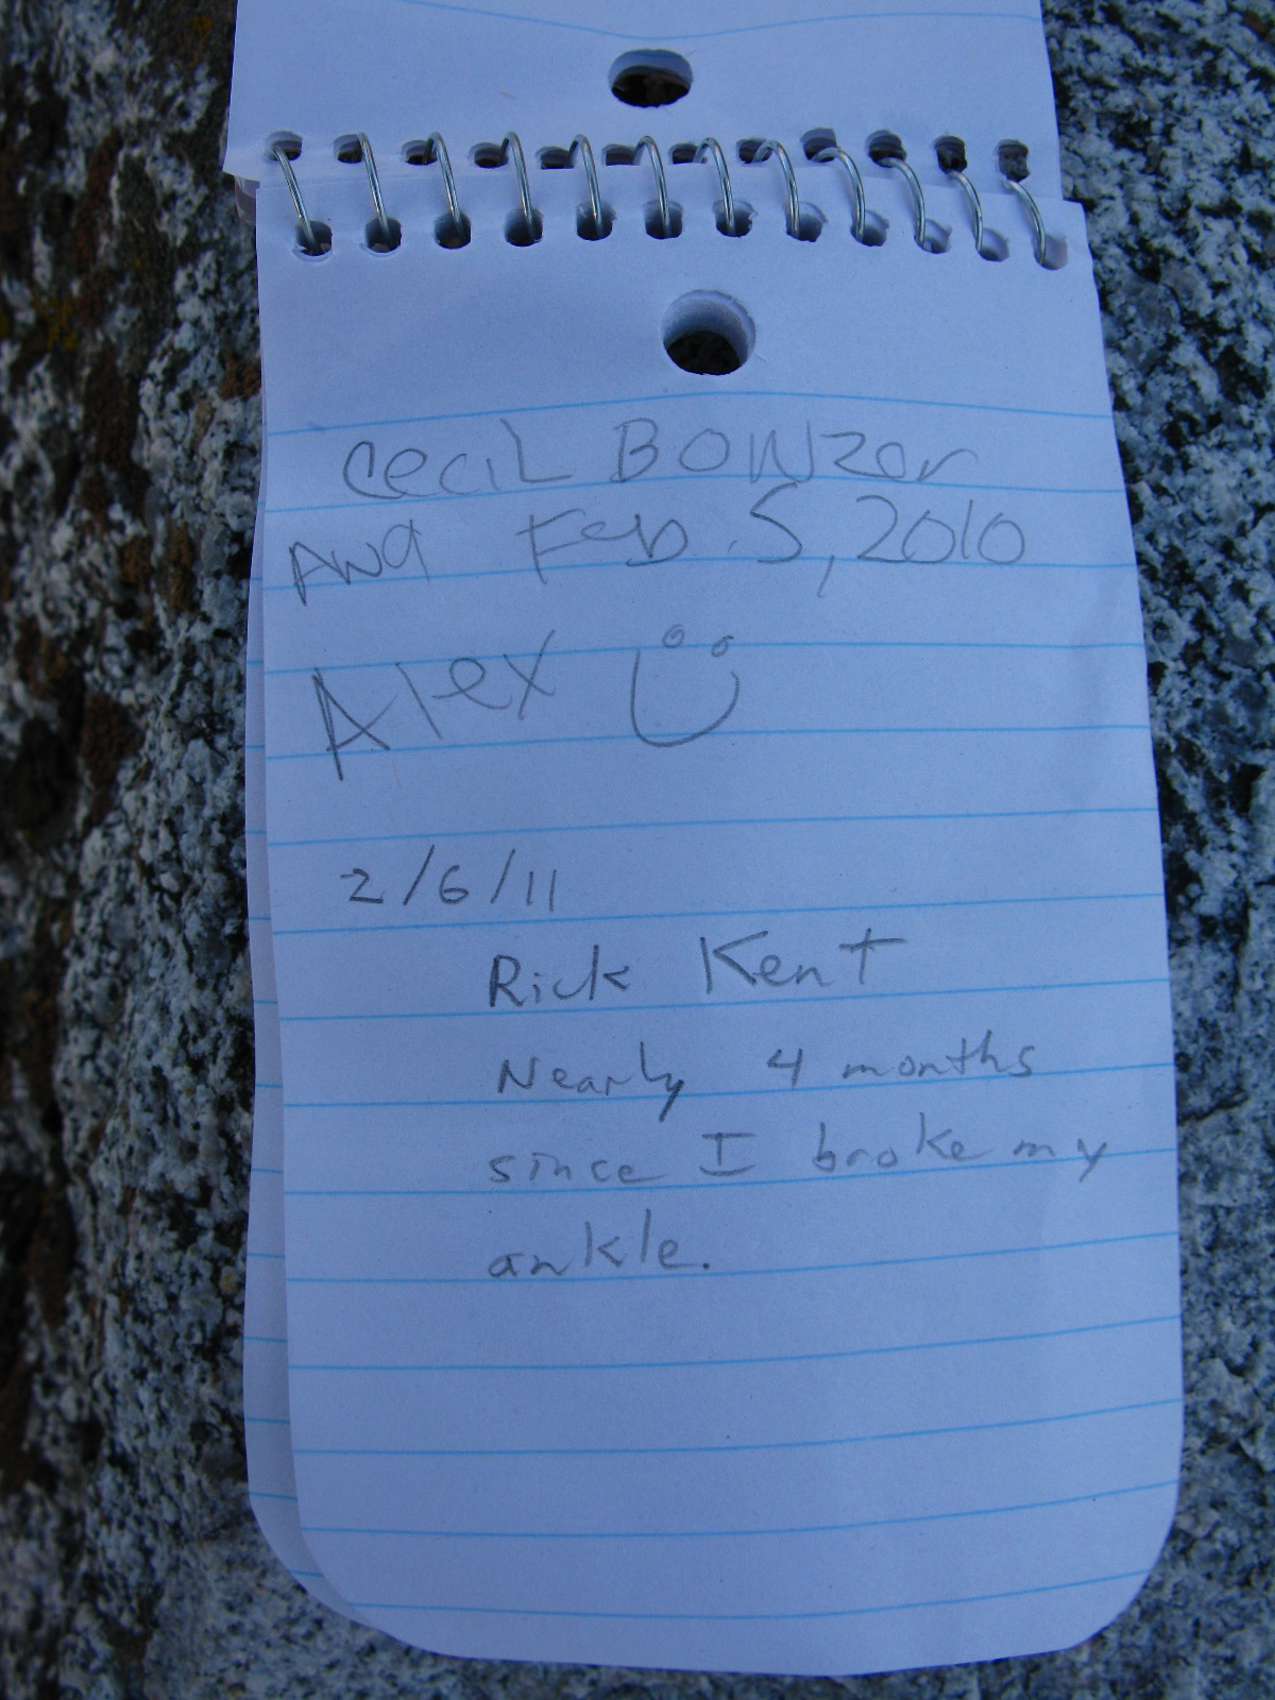 Cecil Bowzer
And Feb 5, 2010
Alex
2/6/11
Rick Kent
Nearly 4 months
since I broke my
ankle.